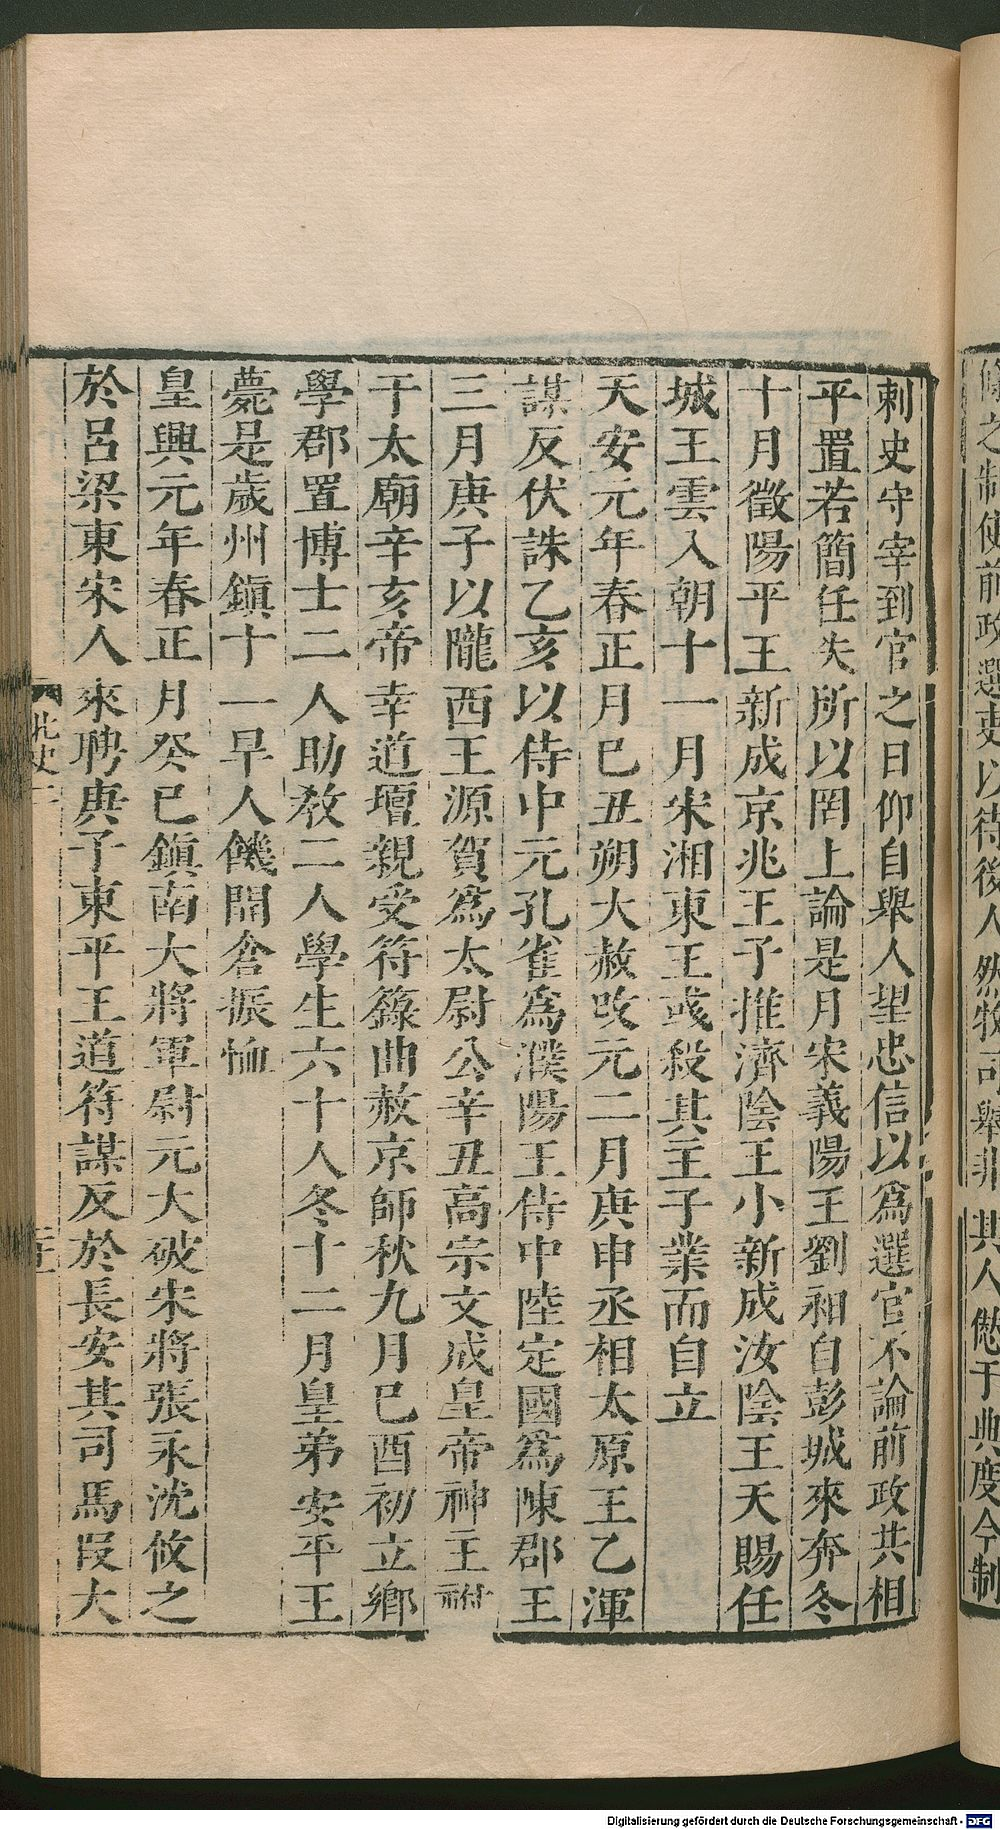 脩之制使前政選吏以待後人然牧司舉非其人愆于典度今制
刺史守宰到官之日仰自舉人望忠信以爲選官不論前政共相
平置若簡任失所以罔上論是月宋義陽王劉昶自彭城來奔冬
十月徵陽平王新成京兆王子推濟陰王小新成汝陰王天賜任
城王雲入朝十一月宋湘東王彧殺其主子業而自立
天安元年春正月巳丑朔大赦改元二月庚申丞相太原王乙渾
謀反伏誅乙亥以侍中元孔雀爲濮陽王侍中陸定國爲陳郡王
三月庚子以隴西王源賀爲太尉公辛丑高宗文成皇帝神主祔
干太廟辛亥帝幸道壇親受符籙曲赦京師秋九月巳酉初立鄉
學郡置博士二人助敎二人學生六十人冬十二月皇弟安平王
薨是歲州鎭十一早人饑開倉振恤
皇興元年春正月癸巳鎭南大將軍尉元大破宋將張永沈攸之
於呂梁東宋人來聘庚子東平王道符謀反於長安其司馬叚大
北史二
Digitalisierung gefördert durch die Deutsche Forschungsgemeinschaft - DFG